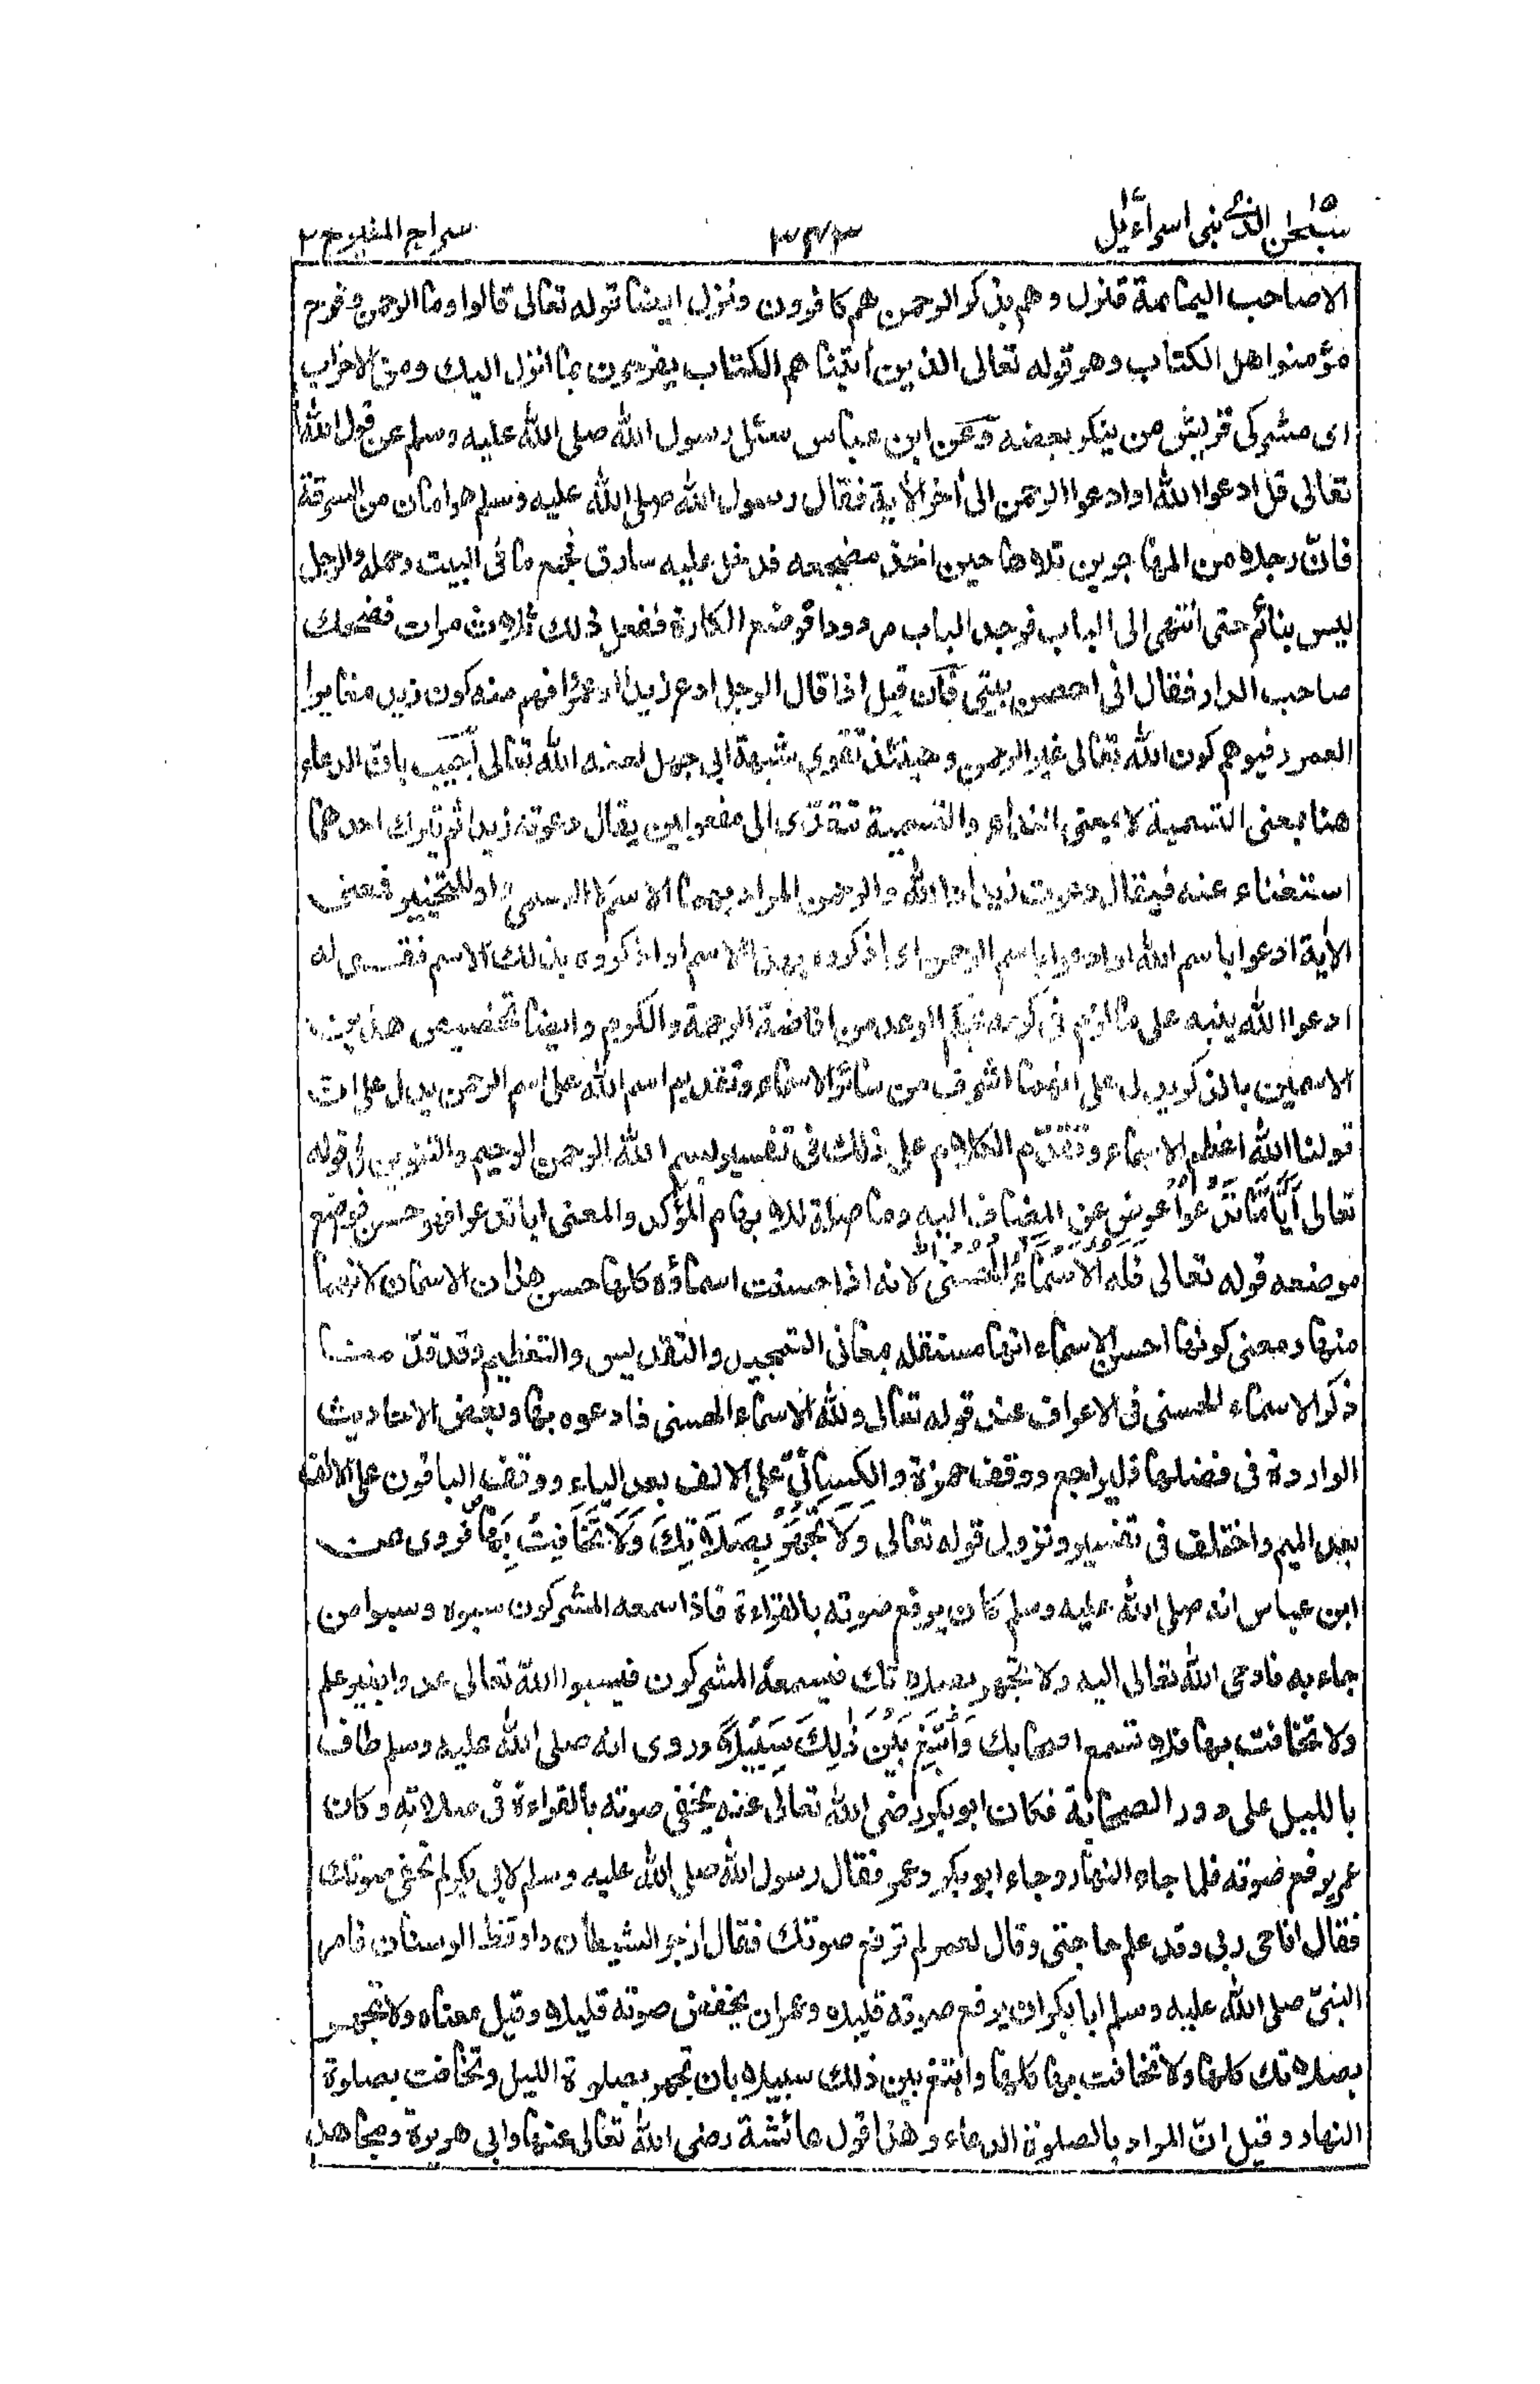 سبحٰن الذی ١٥ بنی اسرآءیل
٣٤٣
سراج المنیر ج ٢
الا صاحب اليمامة فنزل وهم بذكر الرحمن هم كافرون ونزل ايضا قوله تعالى قالوا وما الرحمن وفرح
مؤمنوا اهل الكتاب وهو قوله تعالى الذين أتيناهم الكتاب يفرحون بما انزل اليك ومن الاحزاب
اى مشركى قريش من ينكر بعضه وعن ابن عباس سئل رسول الله صلى الله عليه وسلم عن قول الله
تعالى قل ادعوا الله او ادعوا الرحمن الى أخر الأية فقال رسول الله صلى الله عليه وسلم هو امان من السرقة
فانّ رجلا من المهاجرين تلاها حين اخذ مضجعه فدخل عليه سارق فجمع ما فى البيت وحمله والرجل
ليس بنائم حتى انتهى الى الباب فوجد الباب مردودا فوضع الكارة ففعل ذلك ثلاث مرات فضحك
صاحب الدار فقال انى احصن بيتى فان قيل اذا قال الرجل ادع زيدا او عمرًا فهم منه كون زيد مغايرا
لعمر وفيوهم كون الله تعالى غير الرحمن وحينئذ تقوى شبهة ابى جهل لعنه الله تعالى أجيب بان الدعاء
هنا بمعنى التسمية لا بمعنى النداء والتسمية تتعدّى الى مفعولين يقال دعوته زيدا ثم يترك احدهما
استغناء عنه فيقال دعوت زيدا والله والرحمن المراد بهما الاسم لا المسمى واو للتخيير فمعنى
الأية ادعوا باسم الله او ادعوا باسم الرحمن اى اذكروه بهذا الاسم او اذكروه بذلك الاسم فقوله
ادعوا الله ينبه على من افاضة الرحمة والكرم وايضا تخصيص هذين
الاسمين بالذكر يدل على انهما اشرف من سائر الاسماء وتقديم اسم الله على اسم الرحمن يدل على ان
قولنا الله اعظم الاسماء وتقدّم الكلام على ذلك فى تفسير بسم الله الرحمن الرحيم والتنوين فى قوله
تعالى أَيًّا مَّا تَدْعُوا عوض عن المضاف اليه وما صلة للابهام المؤكد والمعنى ايا تدعوا فهو حسن فوضع
موضعه قوله تعالى فَلَهُ الْأَسْمَاءُ الْحُسْنَى لانه اذا حسنت اسماؤه كلها حسن هذان الاسمان لانهما
منها ومعنى كونها احسن الاسماء انها مستقله بمعانى التمجيد والتقديس والتعظيم وقد قدّمنا
ذكر الاسماء الحسنى فى الاعراف عند قوله تعالى ولله الاسماء الحسنى فادعوه بها وبعض الاحاديث
الواردة فى فضلها فليراجع ووقف حمزة والكسائى على الالف بعد الياء ووقف الباقون على الالف
بعد الميم واختلف فى تفسير ونزول قوله تعالى وَلَا تَجْهَرْ بِصَلَاتِكَ وَلَا تُخَافِتْ بِهَا فروى عن
ابن عباس انه صلى الله عليه وسلم كان يرفع صوته بالقراءة فاذا سمعه المشركون سبوه وسبوا من
جاء به فاوحى الله تعالى اليه ولا تجهر بصلاتك فيسمعه المشركون فيسبوا الله تعالى عدوا بغير علم
ولا تخافت بها فلا تسمع اصحابك وَابْتَغِ بَيْنَ ذٰلِكَ سَبِيْلًا وروى انه صلى الله عليه وسلم طاف
بالليل على دور الصحابة فكان ابو بكر رضى الله تعالى عنه يخفى صوته بالقراءة فى صلاته وكان
عمر يرفع صوته فلما جاء النهار وجاء ابو بكر وعمر فقال رسول الله صلى الله عليه وسلم لابى بكر لم تخفى صوتك
فقال اناجى ربى وقد علم حاجتى وقال لعمر لم ترفع صوتك فقال ازجر الشيطان واوقظ الوسنان فامر
النبىّ صلى الله عليه وسلم ابا بكر ان يرفع صوته قليلا وعمر ان يخفض صوته قليلا وقيل معناه ولا تجهر
بصلاتك كلها ولا تخافت بها كلها وابتغ بين ذلك سبيلا بان تجهر بصلوة الليل وتخافت بصلوة
النهار وقيل انّ المراد بالصلوة الدعاء وهذا قول عائشة رضى الله تعالى عنها وابى هريرة ومجاهد